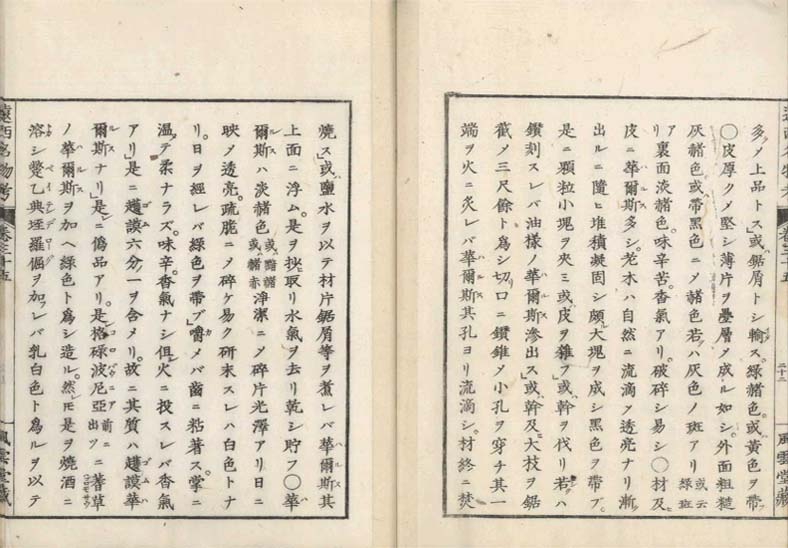 多シ上品トス」或鋸屑トシ輸ス。綠赭色。或黃色ヲ帶ブ
〇皮厚クメ堅シ薄片ヲ疊層メ成ル如シ。外面粗糙
灰赭色或帶黑色ニメ赭色若クハ灰色ノ斑アリ或云綠斑
アリ裏面淡赭色。味辛苦。香氣アリ。破碎シ易シ〇材及ヒ
皮ニ華爾斯多シ。老木ハ自然ニ流滴ノ透亮ナリ漸ク
出ルニ隨ヒ堆積凝固シ頗大塊ヲ成シ黑色ヲ帶ブ。
是ニ顆粒小塊ヲ夾ミ」或皮ヲ錐フ」或幹ヲ伐リ若クハ
鑽刻スレバ油樣ノ華爾斯滲出ス」或幹及ヒ大枝ヲ鋸
截メ三尺餘ト爲シ切リ口ニ鑽錐メ小孔ヲ穿チ其一
端ヲ火ニ炙レバ華爾斯其孔ヨリ流滴シ。材終ニ焚
遠西名物考 卷三十五 三十二 風雲堂藏
燒ス」或鹽水ヲ以テ材片鋸屑等ヲ煮レバ華爾斯其
上面ニ浮ム。是ヲ抄取リ水氣ヲ去リ乾シ貯フ〇華
爾斯ハ淡赭色或黯赭或赭赤淨潔ニメ碎片光澤アリ日ニ
映メ透亮。疏脆ニメ碎ケ易ク研末スレハ白色トナ
リ。日ヲ經レバ綠色ヲ帶ブ」嚼メバ齒ニ粘著ス。掌ニ
溫テ柔ナラズ。味辛。香氣ナシ但火ニ投スレバ香氣
アリ」是ニ護謨六分一ヲ含メリ。故ニ其質ハ護謨華
爾斯ナリ」是ニ僞品アリ。是格碌波尼亞前ニ出ツニ蓍草
ノ華爾斯ヲ加ヘ綠色ト爲シ造ル。然レモ是ヲ燒酒ニ
溶シ蹩乙典垤羅倔ヲ加フレバ乳白色ト爲ルヲ以テ
遠西名物考 卷三十五 風雲堂藏